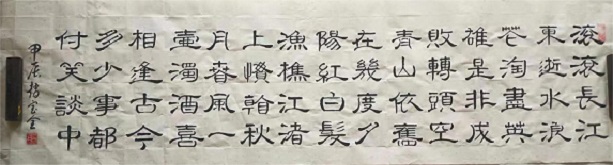 滚滚長江
東逝水浪
花淘盡英
雄是非成
敗轉頭空
青山依舊
在幾度夕
陽紅白髮
漁樵江渚
上慣看秋
月春風一
壺濁酒喜
相逢古今
多少事都
付笑談中
甲辰